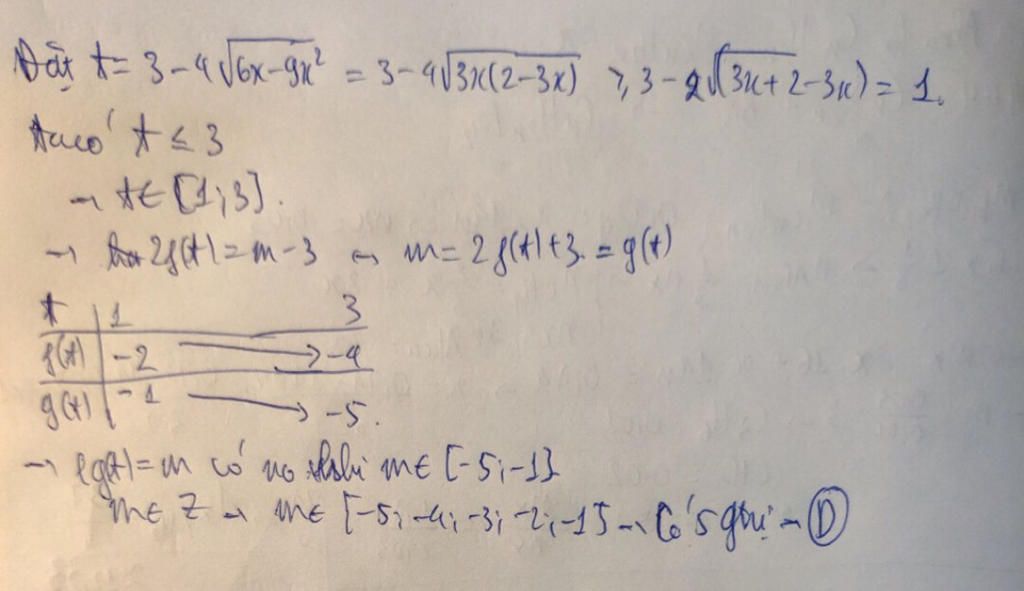 Đặt t = 3 - 4√(6x-9x²) = 3 - 4√(3x(2-3x)) ≥ 3 - 2(3x+2-3x) = 1.
ta có t ≤ 3
→ t ∈ [1;3].
→ 2f(t) = m - 3 → m = 2f(t)+3. = g(t)
t | 1 3
f(t) | -2 → -4
g(t) | -1 → -5.
→ g(t) = m có no khi m ∈ [-5;-1]
m ∈ Z → m ∈ {-5; -4; -3; -2; -1} → Có 5 gtrị → D